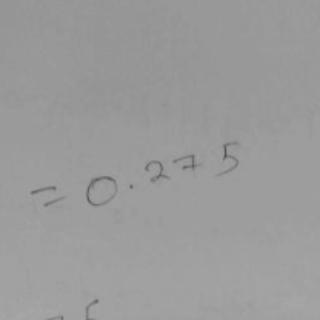 = 0.275